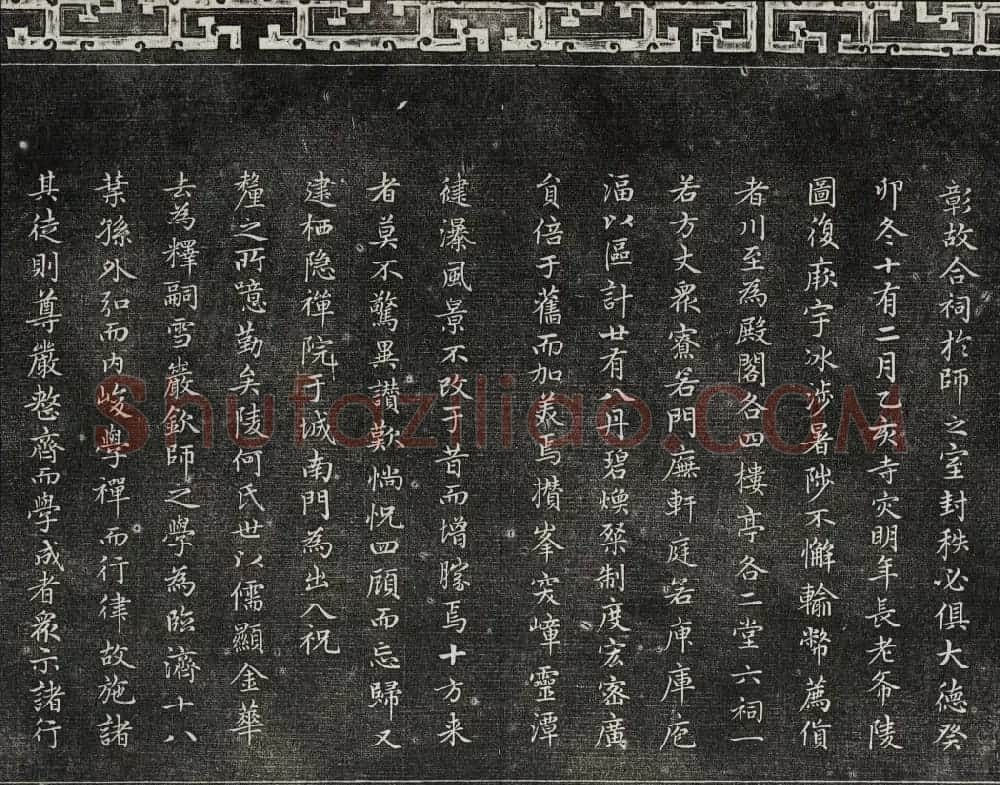 彰故合祠於師之室封秩必俱大德癸
卯冬十有二月乙亥寺灾明年長老希陵
圖復厥宇冰涉暑陟不懈輸幣薦貨
者川至為殿閣各四樓亭各二堂六祠一
若方丈衆寮若門廡軒庭若庫庖
湢以區計廿有八丹碧煥粲制度宏密廣
負倍于舊而加羙焉攢峯突嶂靈潭
健瀑風景不改于昔而增勝焉十方来
者莫不驚異讃歎惝怳四顧而忘歸又
建栖隐禪院于城南門為出入祝
釐之所噫勤矣陵何氏世以儒顯金華
去為釋嗣雪巖欽師之學為臨濟十八
葉孫外弘而内峻學禪而行律故施諸
其徒則尊嚴整齊而學成者衆示諸行
Shufaziliao.COM